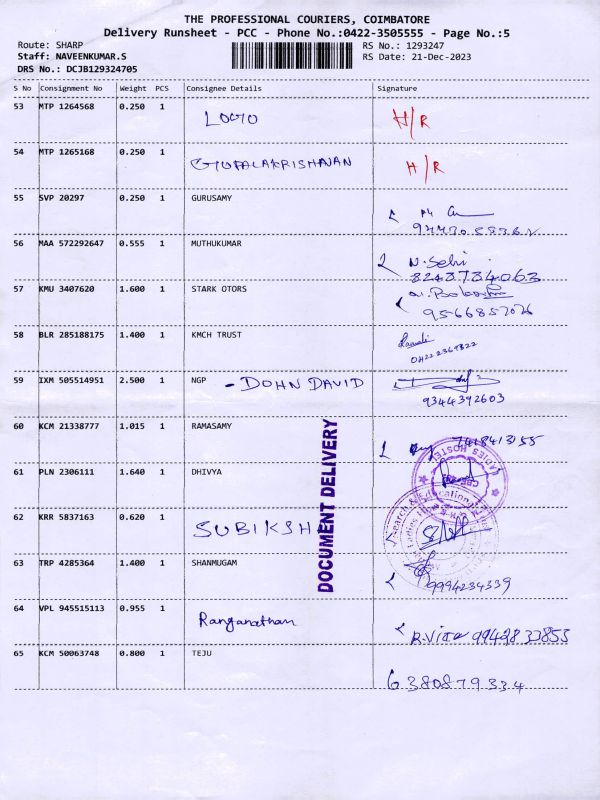 THE PROFESSIONAL COURIERS, COIMBATORE
Delivery Runsheet - PCC - Phone No.:0422-3505555 - Page No.:5
Route: SHARP
Staff: NAVEENKUMAR.S
DRS No.: DCJB129324705
RS No.: 1293247
RS Date: 21-Dec-2023
S No Consignment No Weight PCS Consignee Details Signature
53 MTP 1264568 0.250 1 LOGU H/R
54 MTP 1265168 0.250 1 GOPALAKRISHANAN H/R
55 SVP 20297 0.250 1 GURUSAMY
56 MAA 572292647 0.555 1 MUTHUKUMAR N. Selvi
8243734063
57 KMU 3407620 1.600 1 STARK OTORS
9566857026
58 BLR 285188175 1.400 1 KMCH TRUST
04222369322
59 IXM 505514951 2.500 1 NGP - DOHN DAVID
9344392603
60 KCM 21338777 1.015 1 RAMASAMY 7418413155
61 PLN 2306111 1.640 1 DHIVYA
LADIES HOSTEL
62 KRR 5837163 0.620 1 SUBIKSHA
63 TRP 4285364 1.400 1 SHANMUGAM
9994234339
DOCUMENT DELIVERY
64 VPL 945515113 0.955 1 Ranganathan
9942833853
65 KCM 50063748 0.800 1 TEJU
6380879334